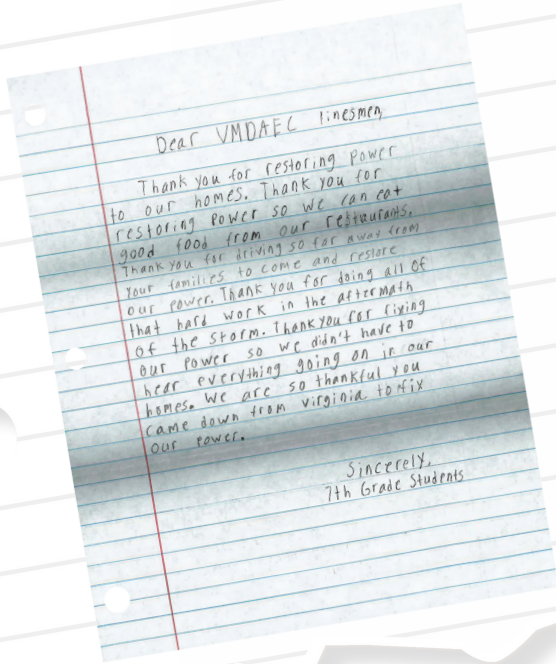 Dear VMDAEC linesmen,
Thank you for restoring power
to our homes. Thank you for
restoring power so we can eat
good food from our restaurants.
Thank you for driving so far away from
your families to come and restore
our power. Thank you for doing all of
that hard work in the aftermath
of the storm. Thank you for fixing
our power so we didn't have to
hear everything going on in our
homes. We are so thankful you
came down from virginia to fix
our power.
Sincerely,
7th Grade Students